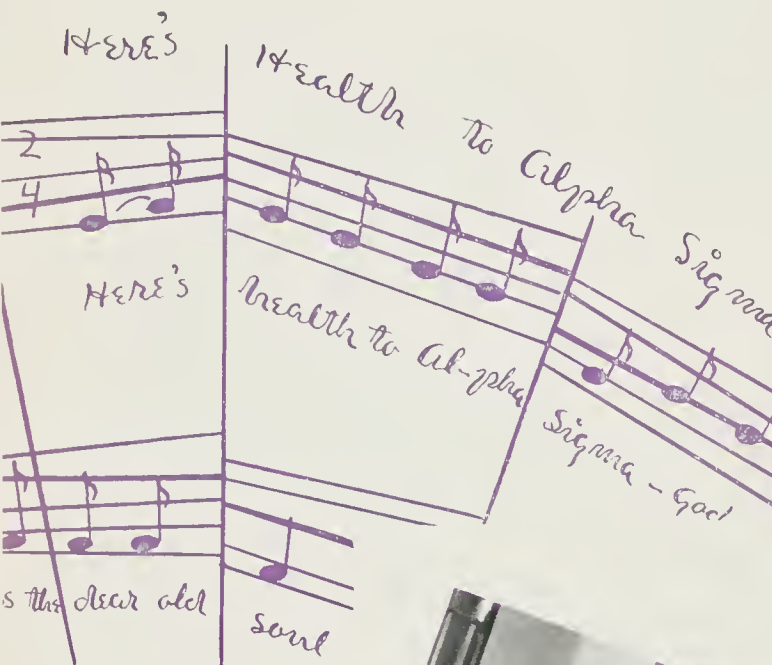 Here's
Health to Alpha Sigma
2
4
Here's
health to Al-pha
Sigma - God
s the dear old
soul